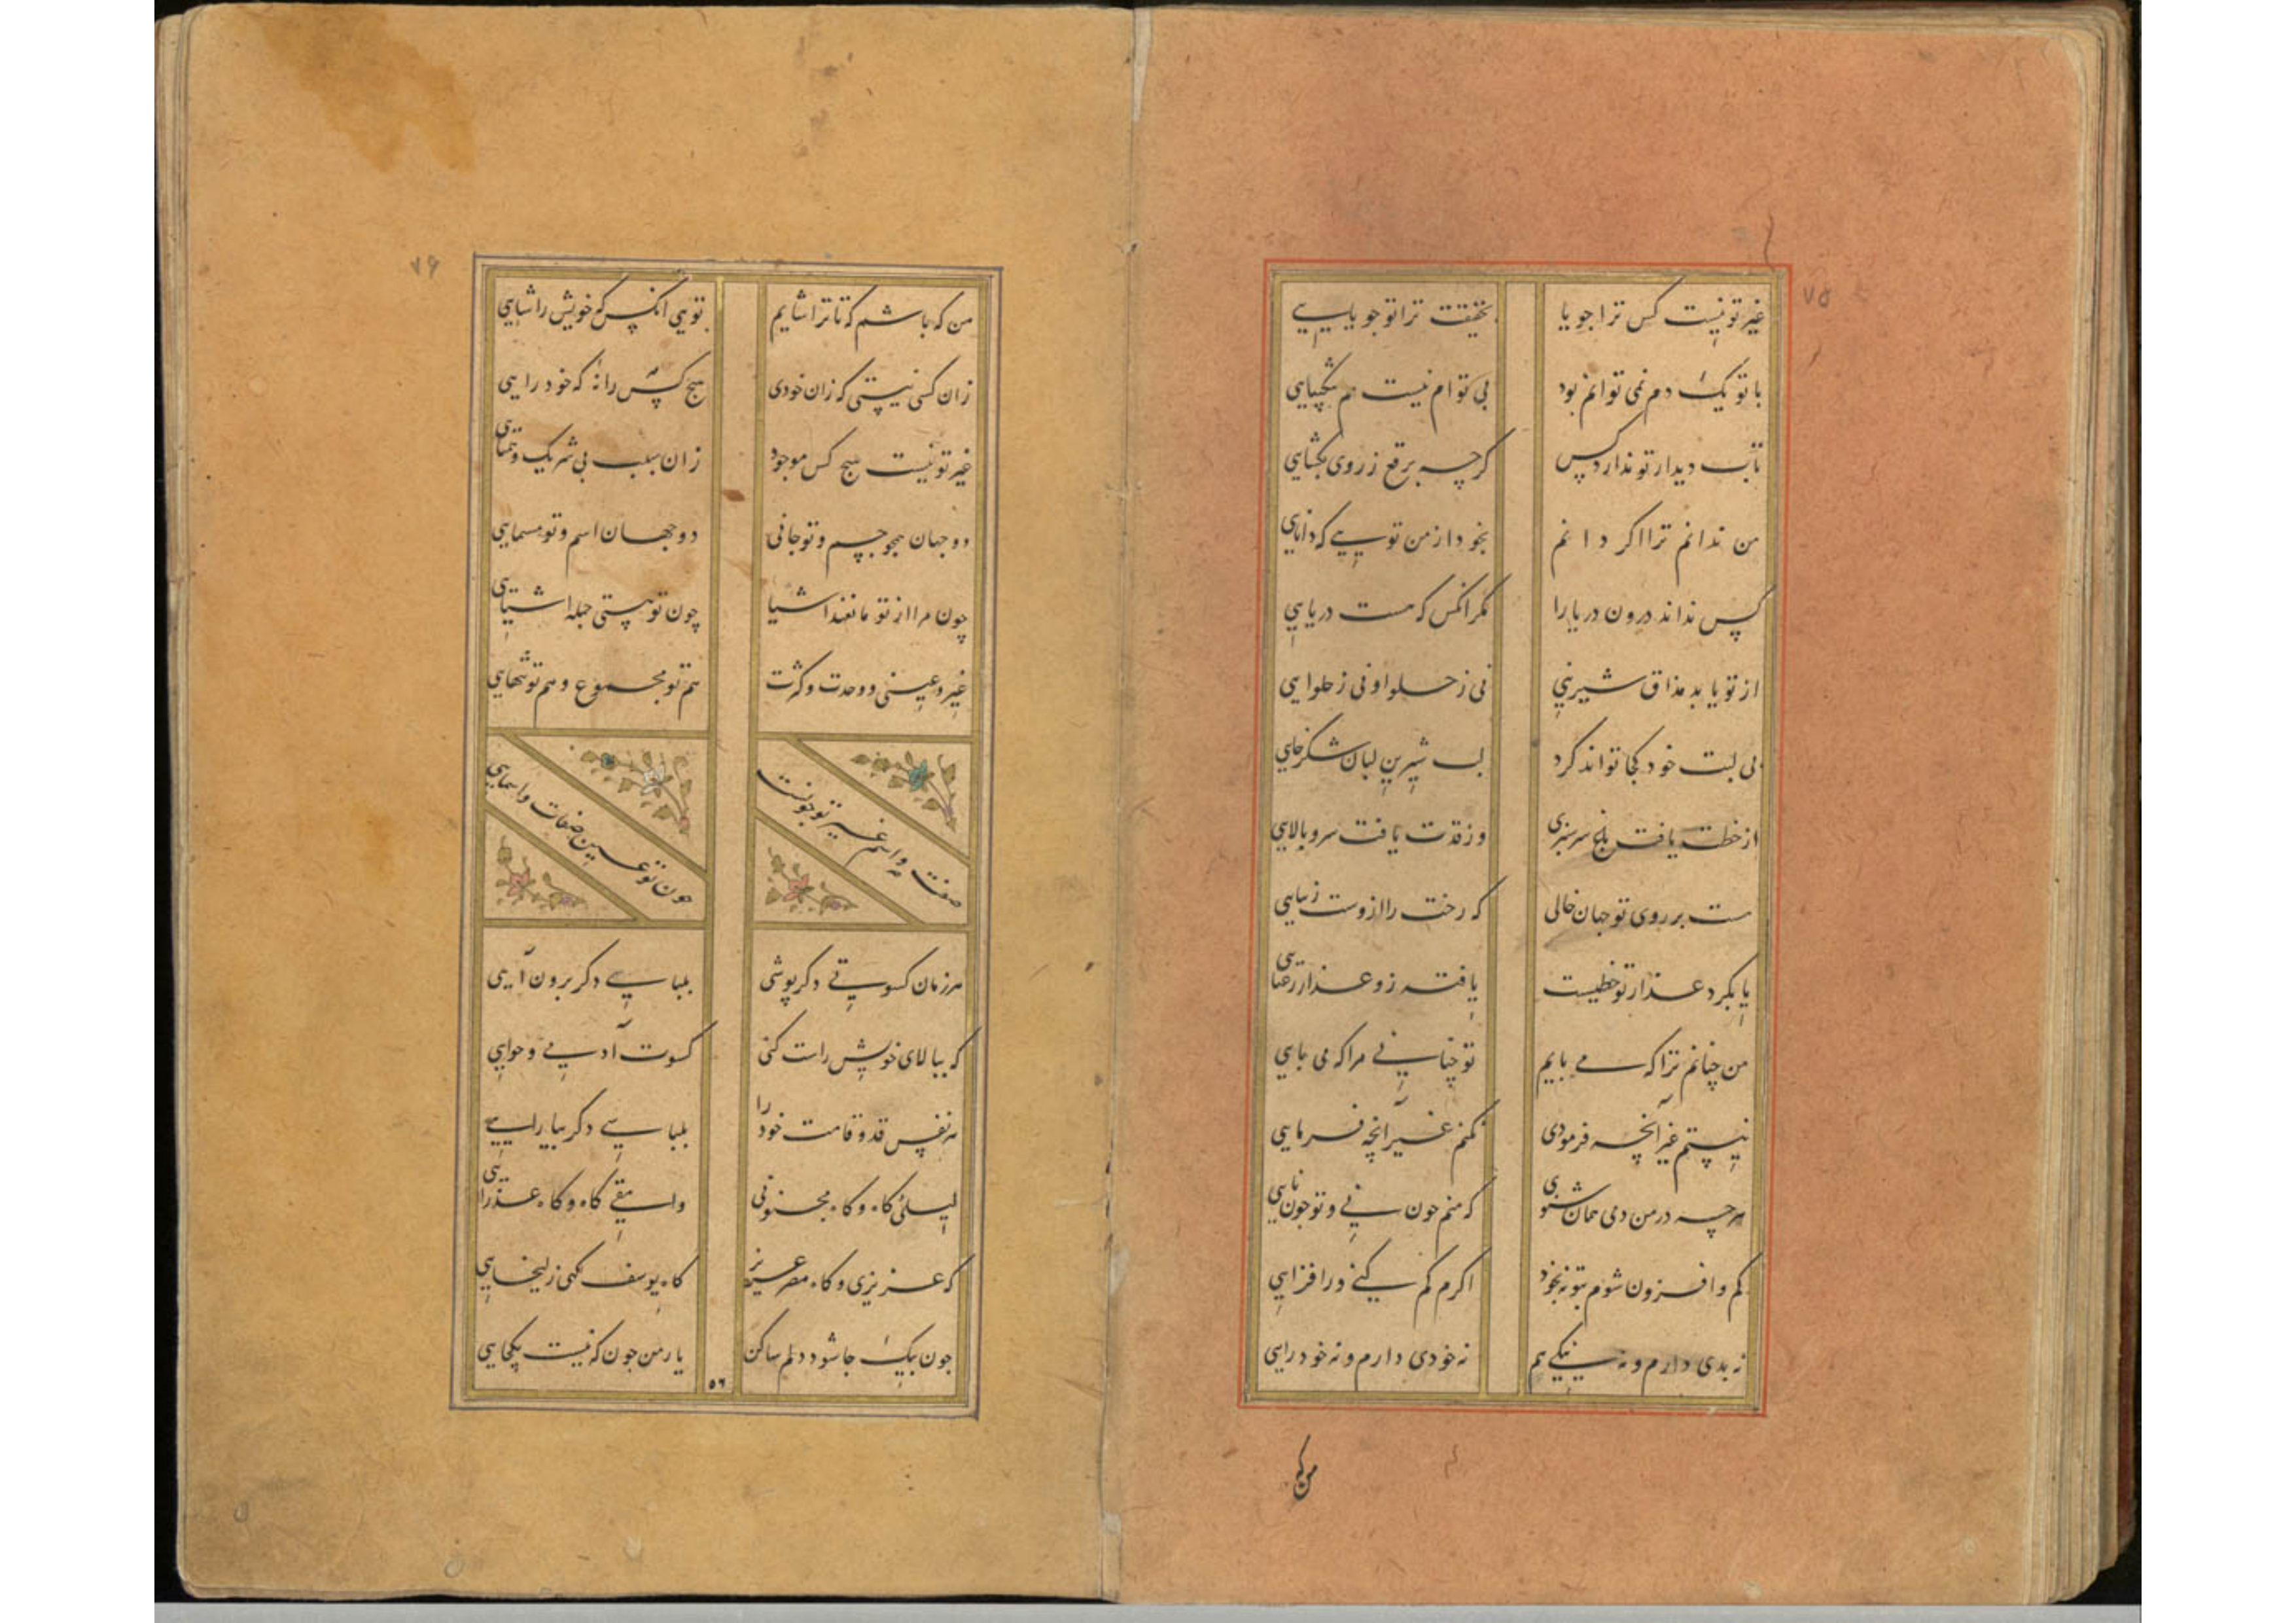 ۷۵
غیر تو نیست کس ترا جویا
بحقیقت ترا تو جویایی
با تو یک دم نمی توانم بود
بی تو ام نیست هم شکیبایی
تاب دیدار تو ندارد کس
کرچه برقع ز روی بکشایی
من ندانم ترا اکر دانم
بخود از من تویی که دانایی
کس نداند درون دریا را
مکر انکس که هست دریایی
از تو یابد مذاق شیرینی
نی ز حلوا و نی ز حلوایی
بی لبت خود کجا تواند کرد
لب شیرین لبان شکرخایی
از خطت یافت باغ سرسبزی
وز قدت یافت سرو بالایی
هست بر روی تو جهان خالی
که رخت را ازوست زیبایی
یا بکرد عذار تو خطیست
یافته زو عذار رعنایی
من چنانم ترا که می بایم
تو چنانی مرا که می بایی
نیستم غیر آنچه فرمودی
نکنم غیر آنچه فرمایی
هرچه در من دمی همان شنوی
که منم جون نی و تو جون نایی
کم و افزون شوم بتو نه بخود
اکرم کم کنی ور افزایی
نه بدی دارم و نه نیکی هم
نه خودی دارم و نه خود رایی
من که
۷۶
من که باشم که تا ترا شایم
تویی انکس که خویش را شایی
زان کسی نیستی که زان خودی
هیج کس را نه که خود رایی
غیر تو نیست هیج کس موجود
زان سبب بی شریک و همتایی
دو جهان همجو جسم و تو جانی
دو جهان اسم و تو مسمایی
چون مرا از تو مانعند اشیا
چون تو هستی جمله اشیایی
غیر و عینی و وحدت و کثرت
هم تو مجموع و هم تو تنهایی
صفت و اسم غیر تو جو نیست
جون تو عین صفات و اسمایی
هر زمان کسوتی دکر پوشی
بلباسی دکر برون آیی
که ببالای خویش راست کنی
کسوت آدمی و حوایی
هر نفس قد و قامت خود را
بلباسی دکر بیارایی
لیلئی کاه و کاه مجنونی
وامقی کاه و کاه عذرایی
که عزیزی و کاه مصر عزیز
کاه یوسف کهی زلیخایی
جون بیک جا شود دلم ساکن
یار من جون که نیست یکجایی
۵۶